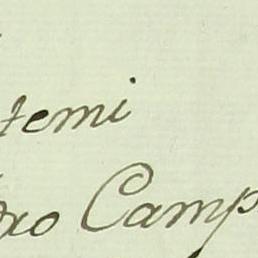 temi
dro Camp